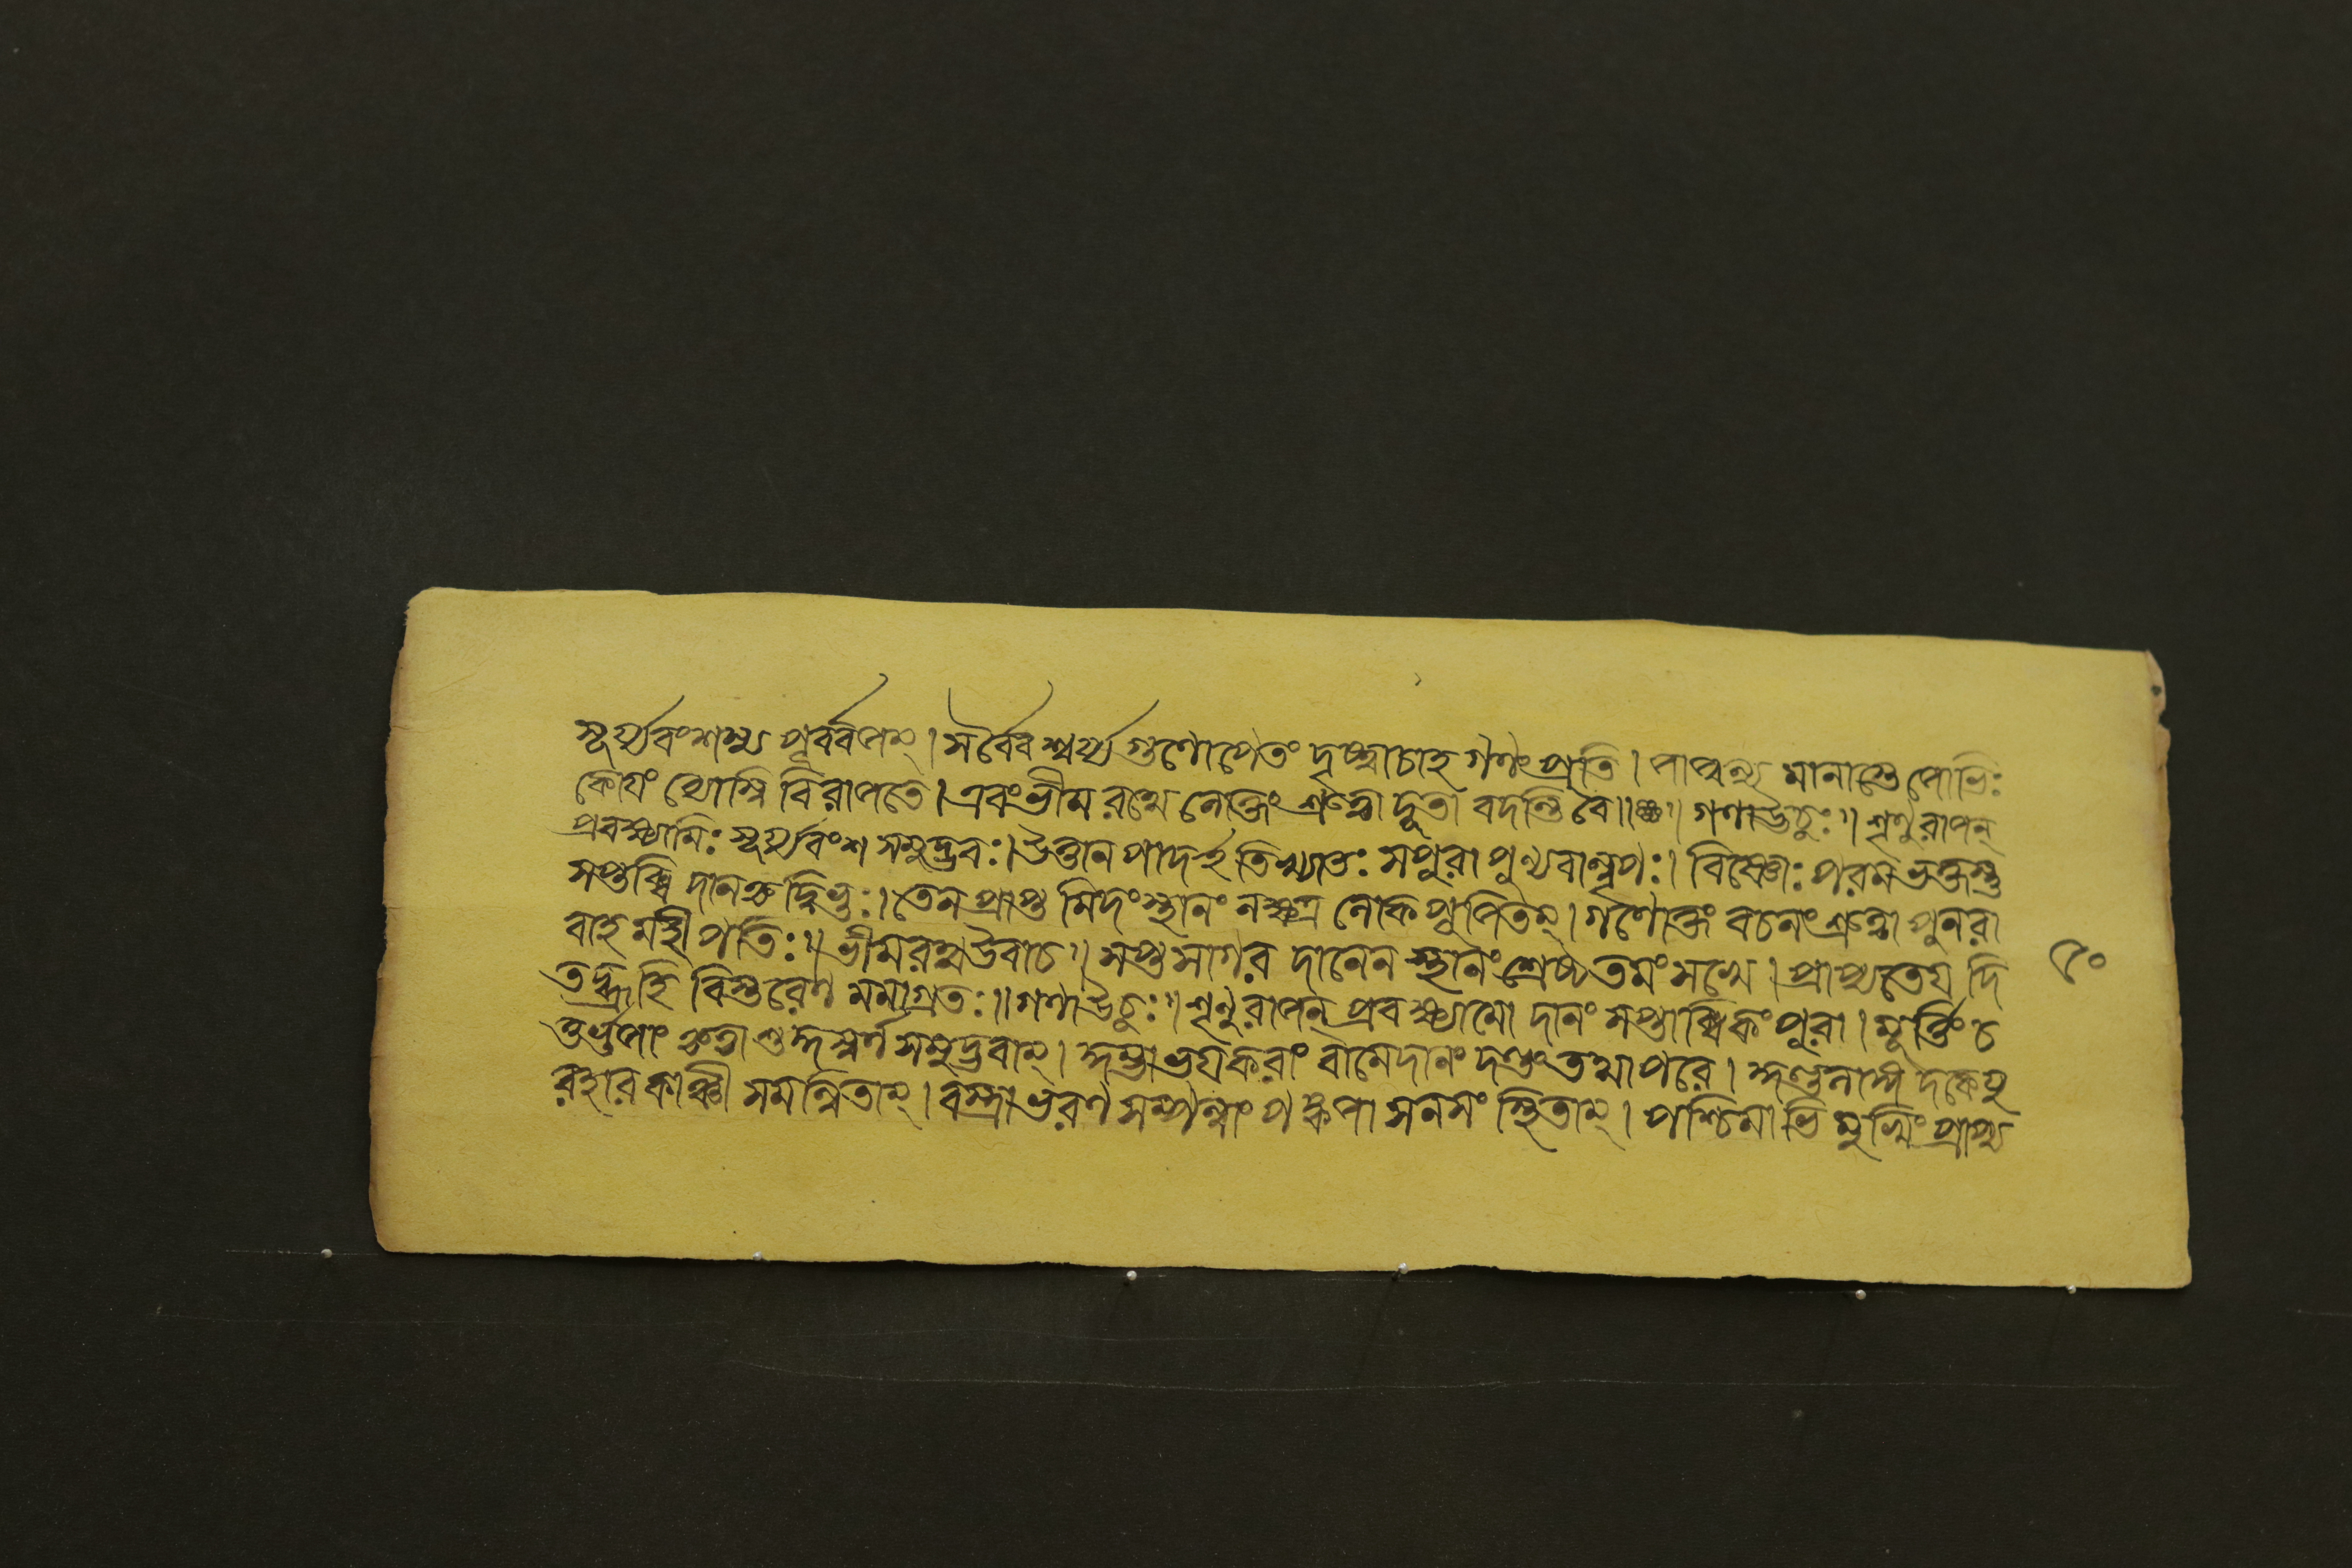 সূর্য্যবংশস্য পূর্ব্বজম্। সর্ব্বৈশ্বর্য্যগুণোপেতং দৃষ্ট্বাচাহ গণং প্রতি। জাজ্বল্যমানাস্তেজোভিঃ
কোযং ব্যোম্নি বিরাজতে। এবং ভীমরথেনোক্তং শ্রুত্বা দূতা বদন্তি বৈ॥ গণা উচুঃ॥ শৃণু রাজন্
প্রবক্ষ্যামিঃ সূর্য্যবংশ সমুদ্ভবঃ। উত্তানপাদ ইতি খ্যাতঃ স পুরা পুণ্যবান্নৃপঃ। বিষ্ণোঃ পরমভক্তস্তু
সপ্তাব্ধি দানকৃদ্বিভুঃ। তেন প্রাপ্তমিদং স্থানং নক্ষত্রলোকপূজিতম্। গণোক্তং বচনং শ্রুত্বা পুনরা
বাহ মহীপতিঃ॥ ভীমরথ উবাচ॥ সপ্তসাগর দানেন স্থানং শ্রেষ্ঠতমং মন্যে। প্রাপ্যতে যদি
তদ্ব্রূহি বিস্তরেণ মমাগ্রতঃ॥ গণা উচুঃ॥ শৃণু রাজন্ প্রবক্ষ্যামো দানং সপ্তাব্ধিকং পুরা। মূর্ত্তিং চ
তুর্ভুজাং কৃত্বা শুদ্ধস্বর্ণসমুদ্ভবাম্। ভযকরাং বামে দানং দণ্ডং তথাপরে।
রহারকাঞ্চী সমন্বিতাম্। বস্ত্রাভরণ সম্পন্নাং পঙ্কজাসনসংস্থিতাম্। পশ্চিমাভিমুখিং প্রাপ্য